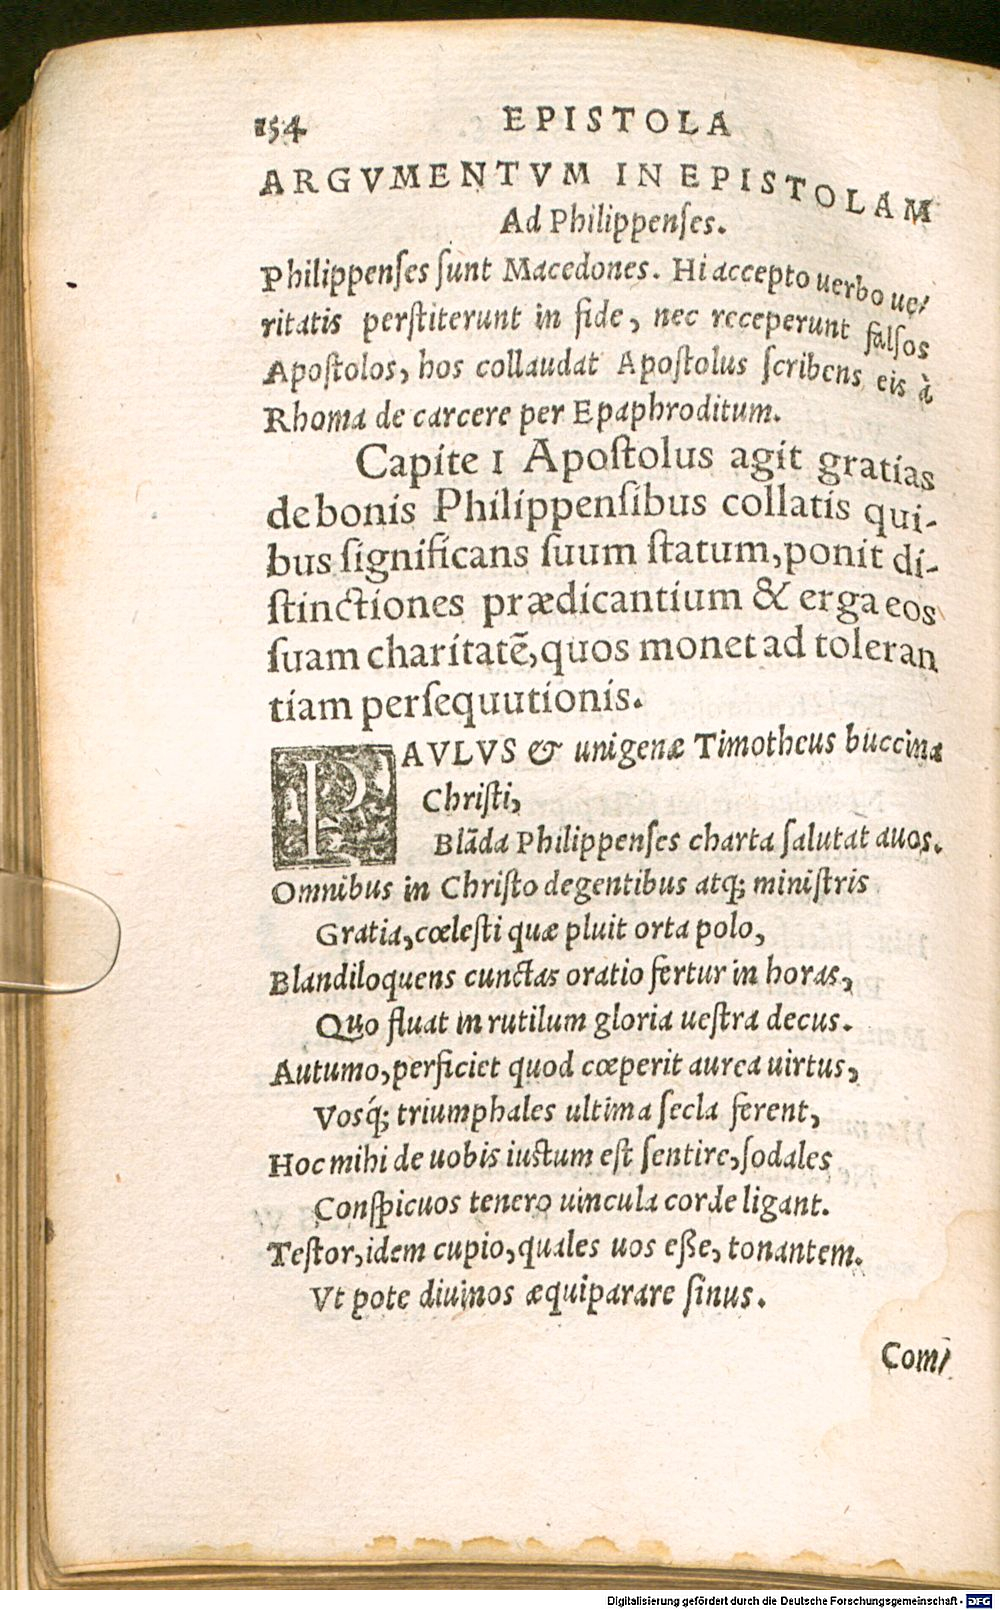 154 EPISTOLA
ARGVMENTVM IN EPISTOLAM
Ad Philippenſes.
Philippenſes ſunt Macedones. Hi accepto uerbo ue/
ritatis perſtiterunt in fide, nec receperunt falſos
Apoſtolos, hos collaudat Apoſtolus ſcribens eis à
Rhoma de carcere per Epaphroditum.
Capite 1 Apoſtolus agit gratias
de bonis Philippenſibus collatis qui-
bus ſignificans ſuum ſtatum, ponit di-
ſtinctiones prædicantium & erga eos
ſuam charitatē, quos monet ad toleran
tiam perſequutionis.
PAVLVS & unigenæ Timotheus buccina
Chriſti,
Blāda Philippenſes charta ſalutat auos.
Omnibus in Chriſto degentibus atq; miniſtris
Gratia, cœleſti quæ pluit orta polo,
Blandiloquens cunctas oratio fertur in horas,
Quo fluat in rutilum gloria ueſtra decus.
Autumo, perficiet quod cœperit aurea uirtus,
Vosq́; triumphales ultima ſecla ferent,
Hoc mihi de uobis iuctum eſt ſentire, ſodales
Conſpicuos tenero uincula corde ligant.
Teſtor, idem cupio, quales uos eſſe, tonantem.
Vt pote diuinos æquiparare ſinus.
Com/
Digitalisierung gefördert durch die Deutsche Forschungsgemeinschaft - DFG